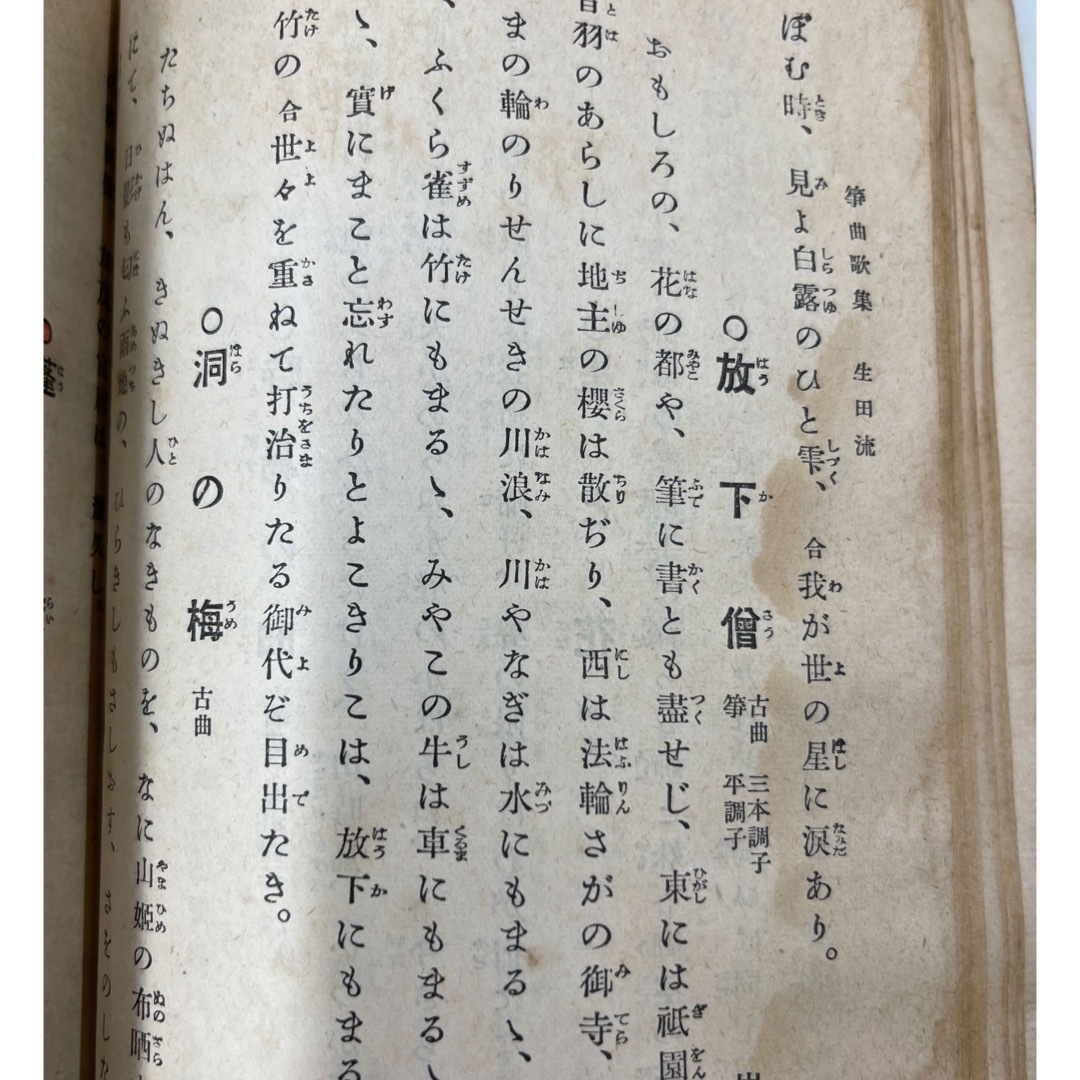 箏曲歌集 生田流
ぼむ時、見よ白露のひと雫、合我が世の星に涙あり。
○放下僧 古曲 三本調子
箏 平調子
おもしろの、花の都や、筆に書とも盡せじ、東には祗園
羽のあらしに地主の櫻は散ぢり、西は法輪さがの御寺、
まの輪のりせんせきの川浪、川やなぎは水にもまるゝ、
、ふくら雀は竹にもまるゝ、みやこの牛は車にもまる
ゝ、實にまこと忘れたりとよこきりこは、放下にもまる
竹の合世々を重ねて打治りたる御代ぞ目出たき。
○洞の梅 古曲
たちぬはん、きぬきし人のなきものを、なに山姫の布晒
にて、日影も匂ふ雨地の、ひらきしもさしるす、さをのした